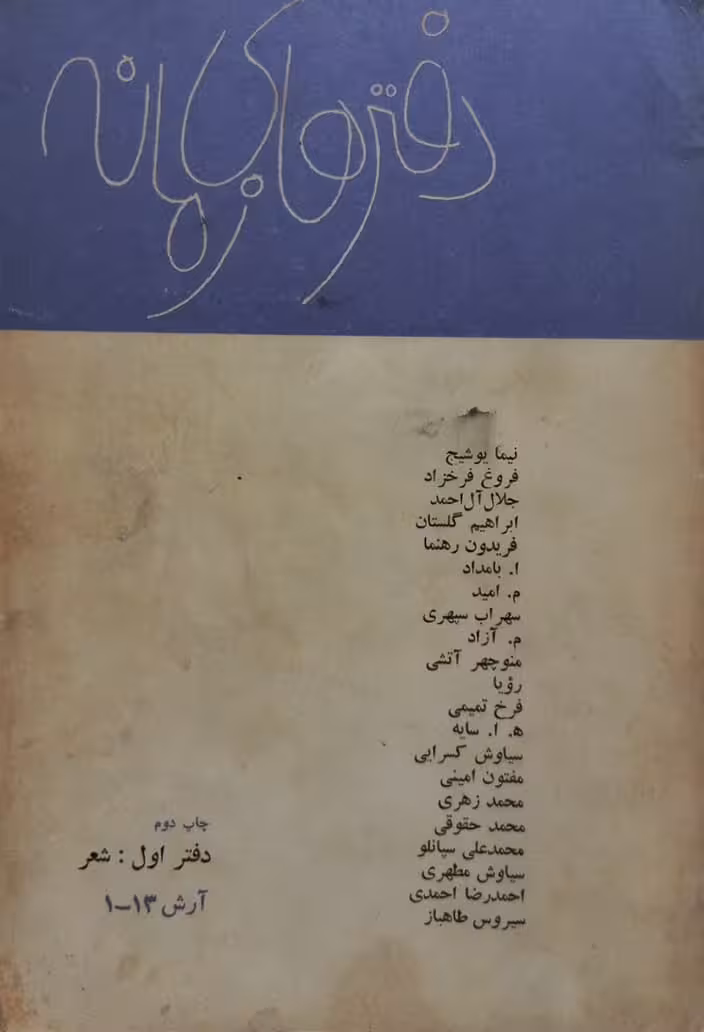 دفترهای زمانه
نیما یوشیج
فروغ فرخزاد
جلال‌آل‌احمد
ابراهیم گلستان
فریدون رهنما
ا. بامداد
م. امید
سهراب سپهری
م. آزاد
منوچهر آتشی
رؤیا
فرخ تمیمی
ه‍. ا. سایه
سیاوش کسرایی
مفتون امینی
محمد زهری
محمد حقوقی
محمدعلی سپانلو
سیاوش مطهری
احمدرضا احمدی
سیروس طاهباز
چاپ دوم
دفتر اول : شعر
آرش ۱۳–۱